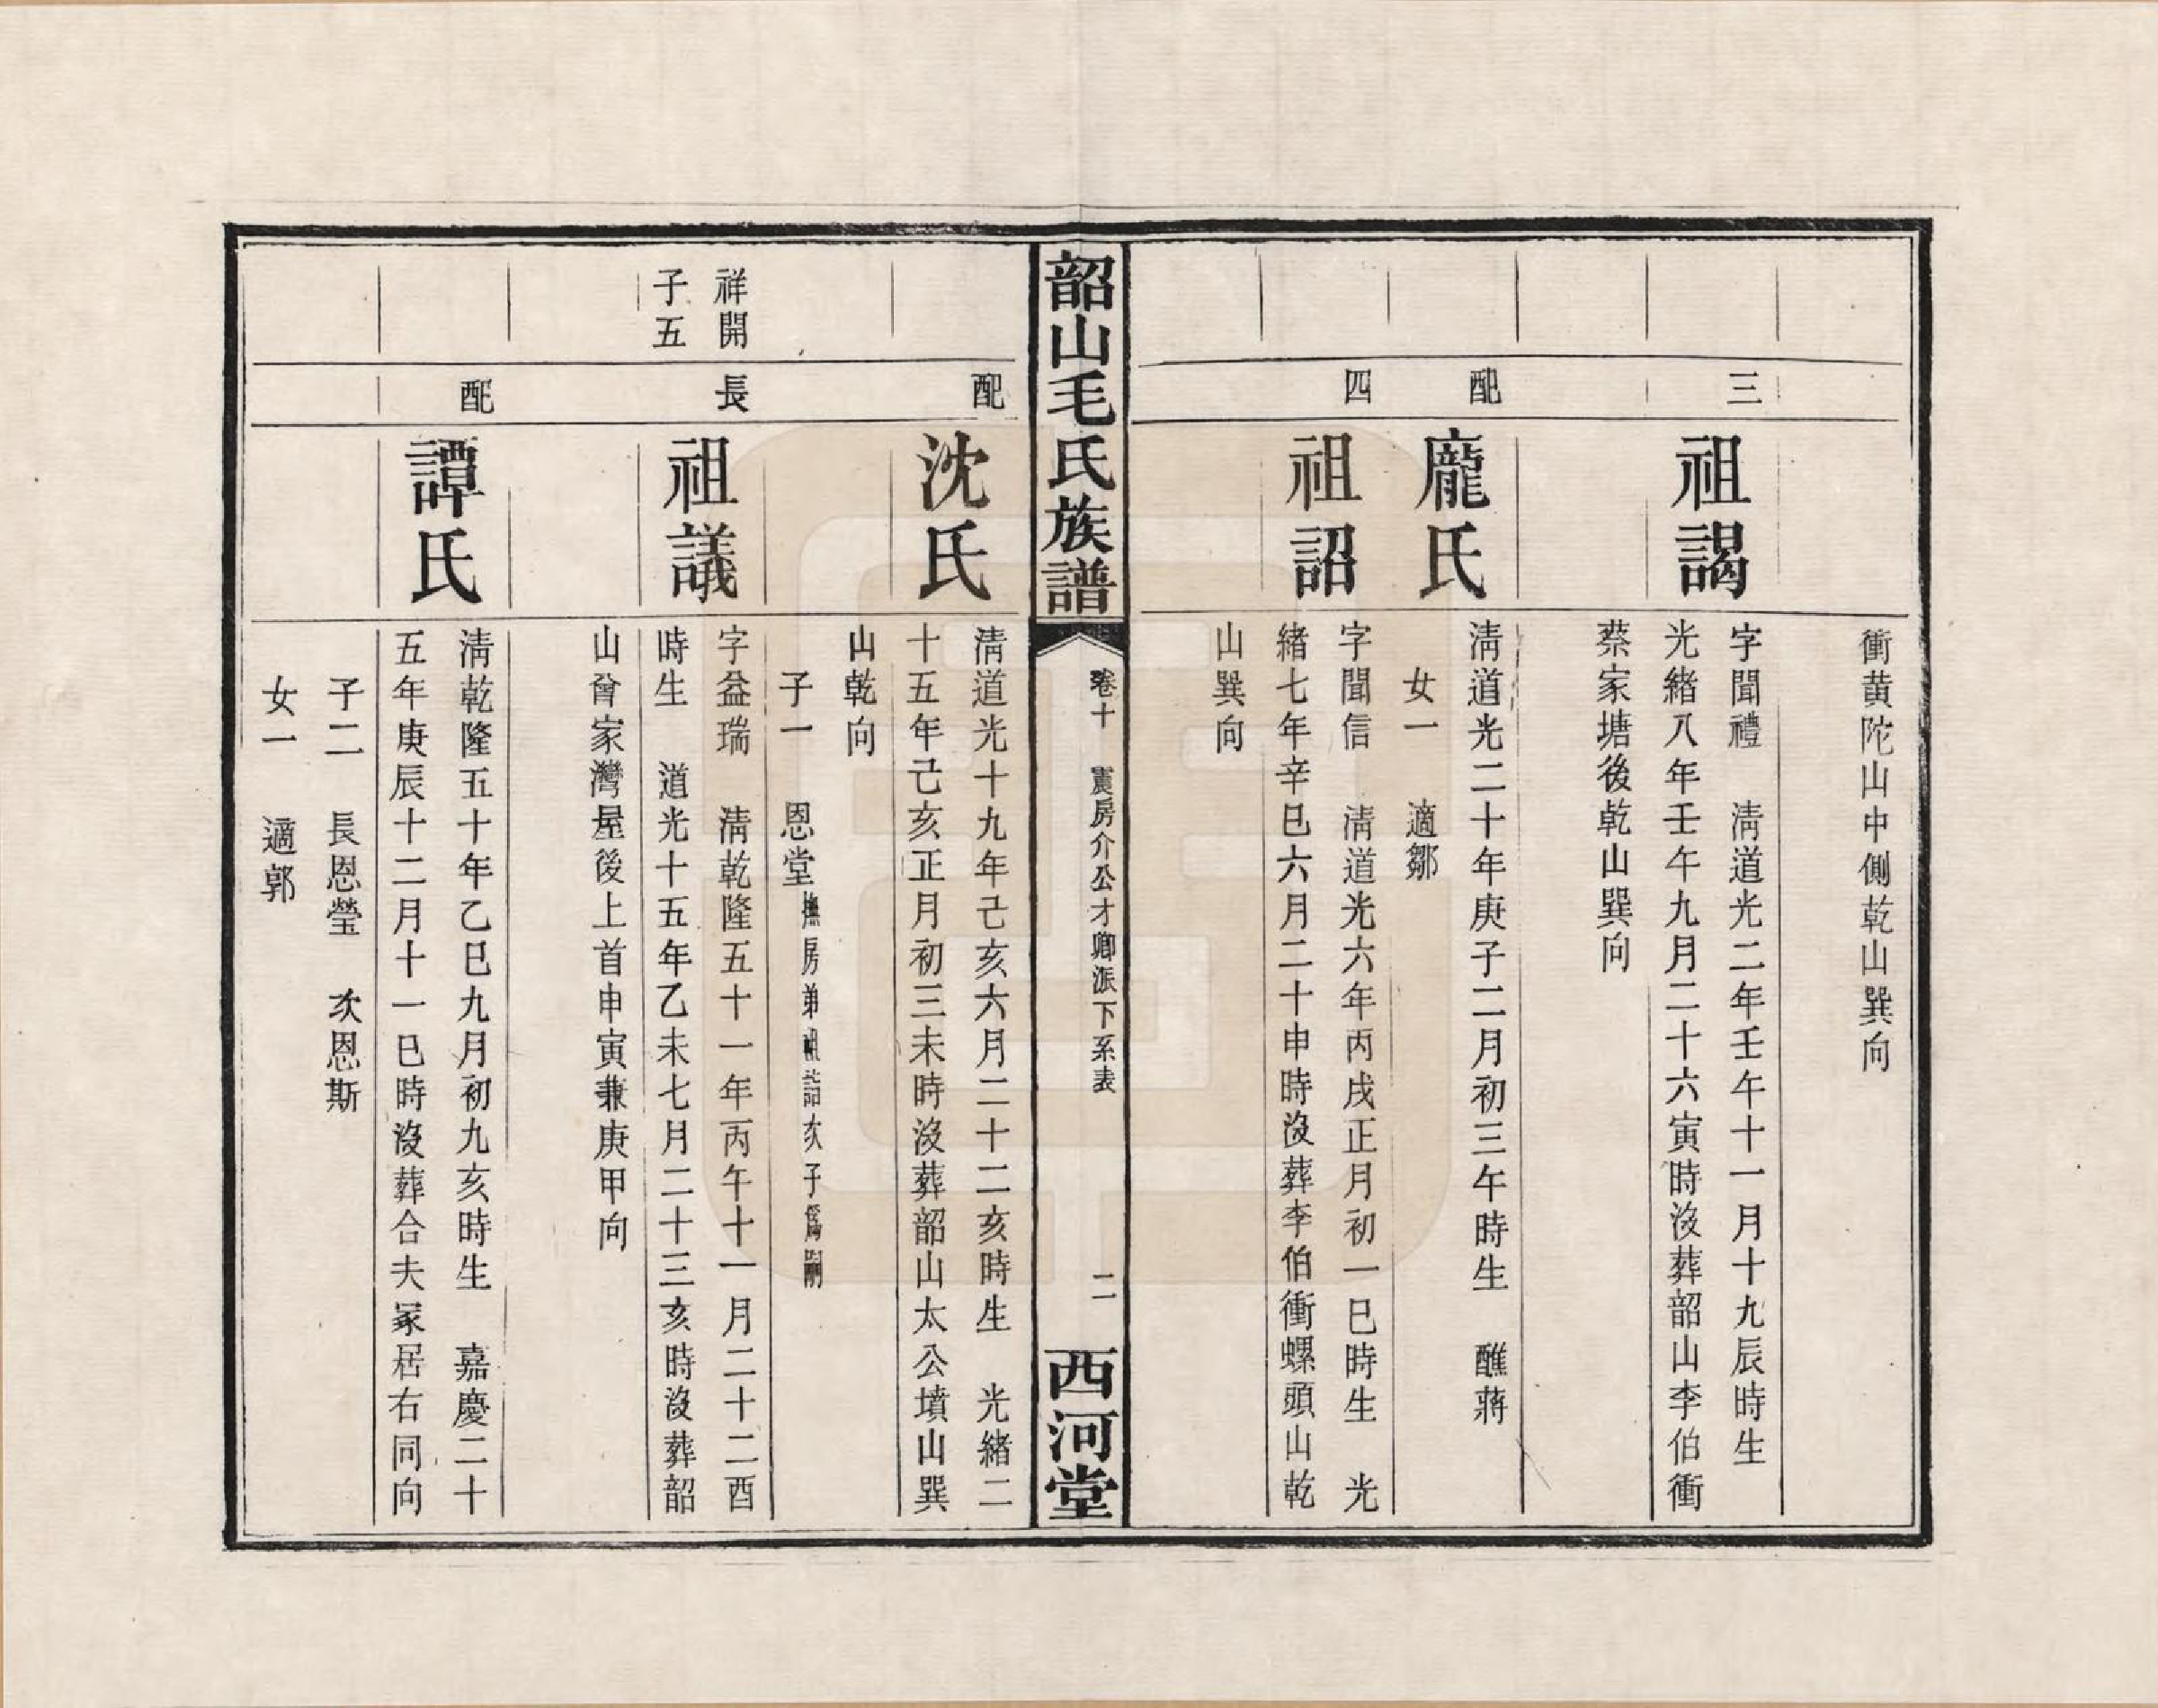 衝黄陀山中側乾山巽向
三
祖謁
字聞禮　清道光二年壬午十一月十九辰時生
光緒八年壬午九月二十六寅時沒葬韶山李伯衝
蔡家塘後乾山巽向
配
龐氏
清道光二十年庚子二月初三午時生　醮蔣
女一　適鄒
四
祖詔
字聞信　清道光六年丙戌正月初一巳時生　光
緒七年辛巳六月二十申時沒葬李伯衝螺頭山乾
山巽向
韶山毛氏族譜
卷十　震房介公才卿派下系表
二
西河堂
配
沈氏
清道光十九年己亥六月二十二亥時生　光緒二
十五年己亥正月初三未時沒葬韶山太公墳山巽
山乾向
子一　恩堂撫房弟祖詰次子爲嗣
祥開
子五
長
祖議
字益瑞　清乾隆五十一年丙午十一月二十二酉
時生　道光十五年乙未七月二十三亥時沒葬韶
山曾家灣屋後上首申寅兼庚甲向
配
譚氏
清乾隆五十年乙巳九月初九亥時生　嘉慶二十
五年庚辰十二月十一巳時沒葬合夫冢居右同向
子二　長恩瑩　次恩斯
女一　適郭